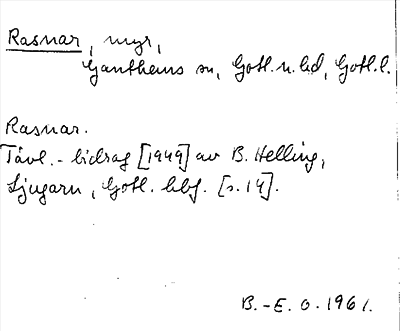 Rasnar, myr,
Ganthems sn, Gotl. n. hd, Gotl. l.
Rasnar.
Tävl.-bidrag [1949] av B. Helling,
Ljugarn, Gotl. hbf. [s. 14].
B.-E. O. 1961.